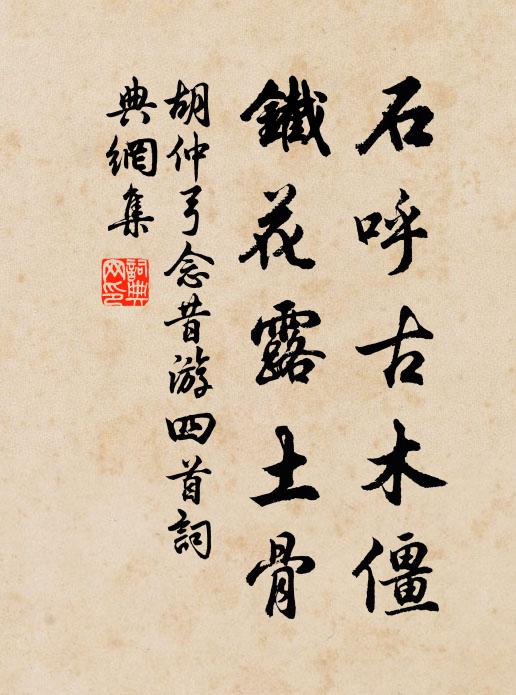 石呼古木僵
鐵花露土骨
胡仲弓念昔游四首詞
典網集
詞典
网印